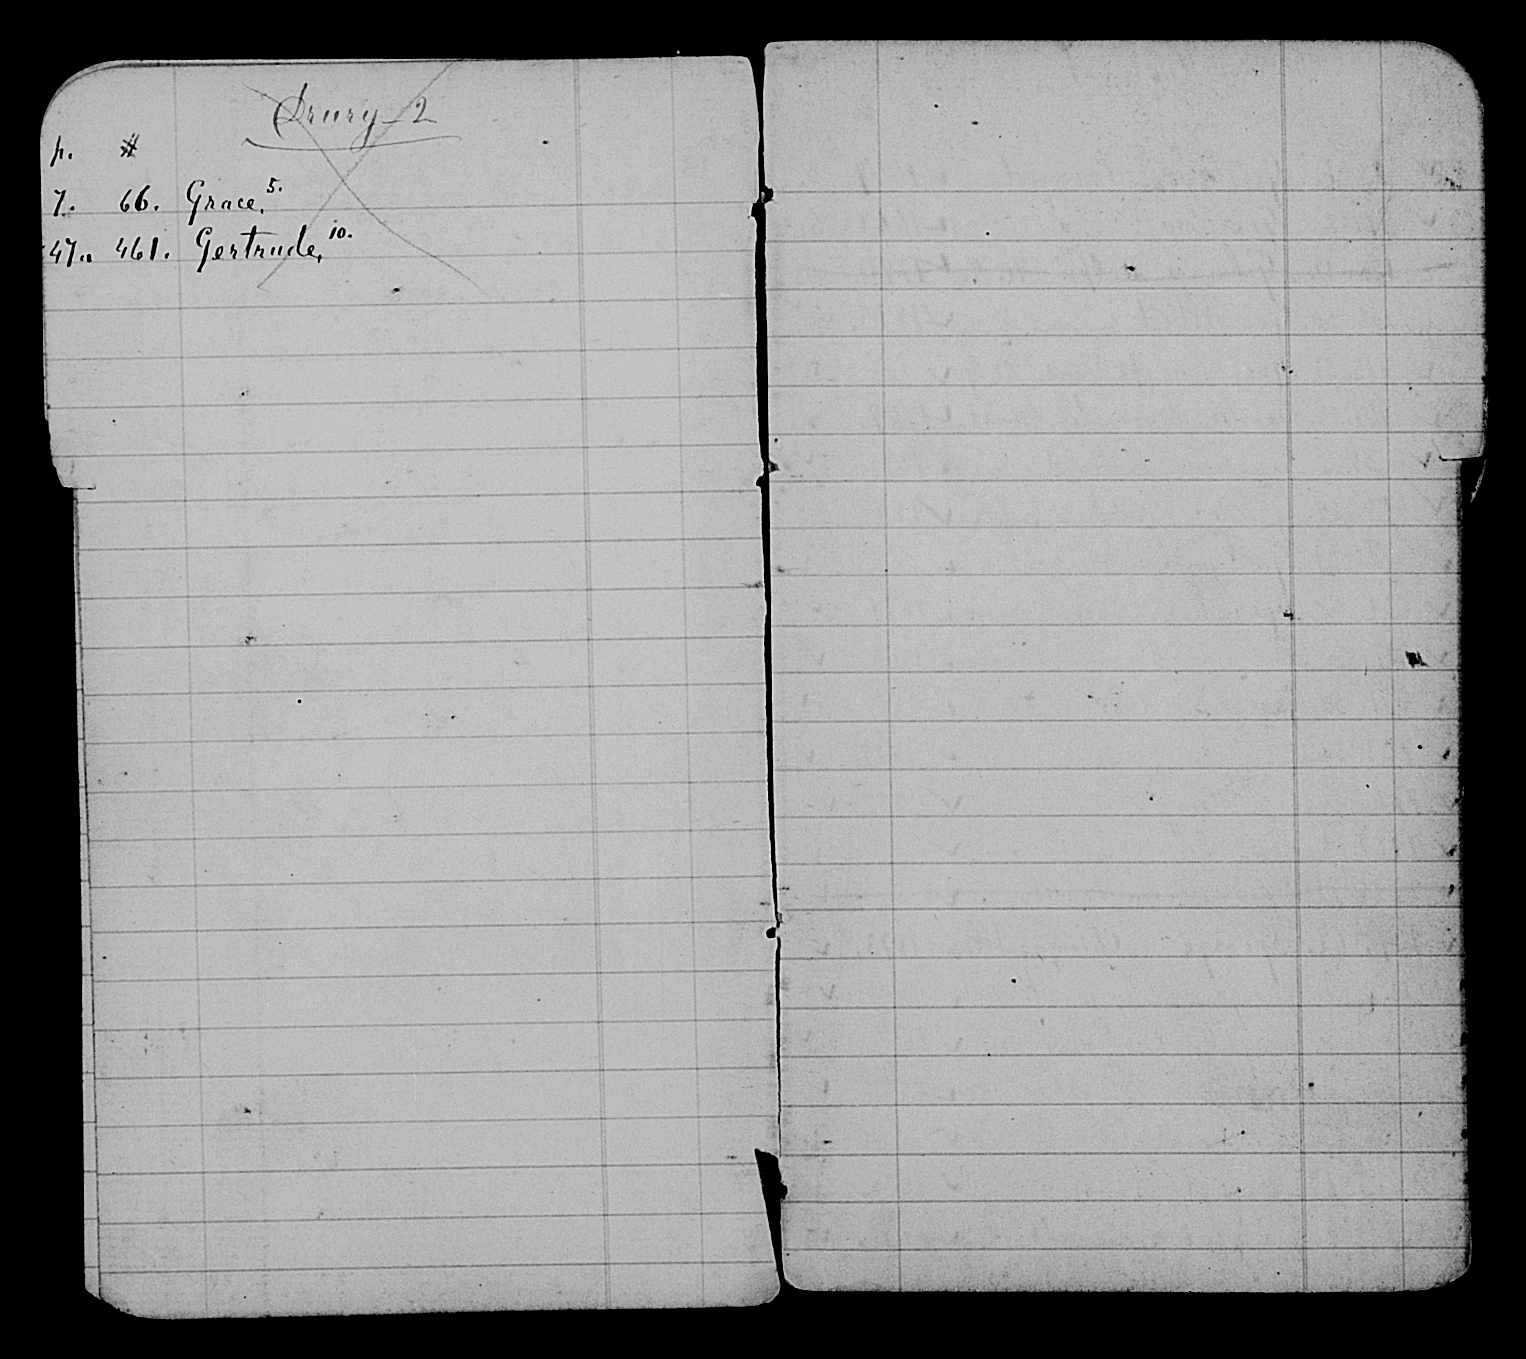 Drury - 2
p. #
7. 66. Grace, 5.
47. 461. Gertrude, 10.